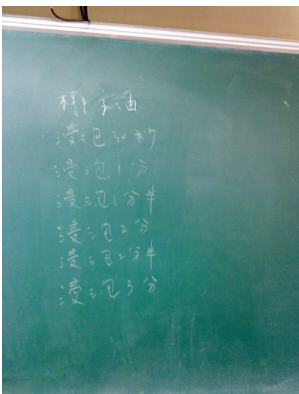 浸泡30秒
浸泡1分
浸泡1分半
浸泡2分
浸泡2分半
浸泡3分